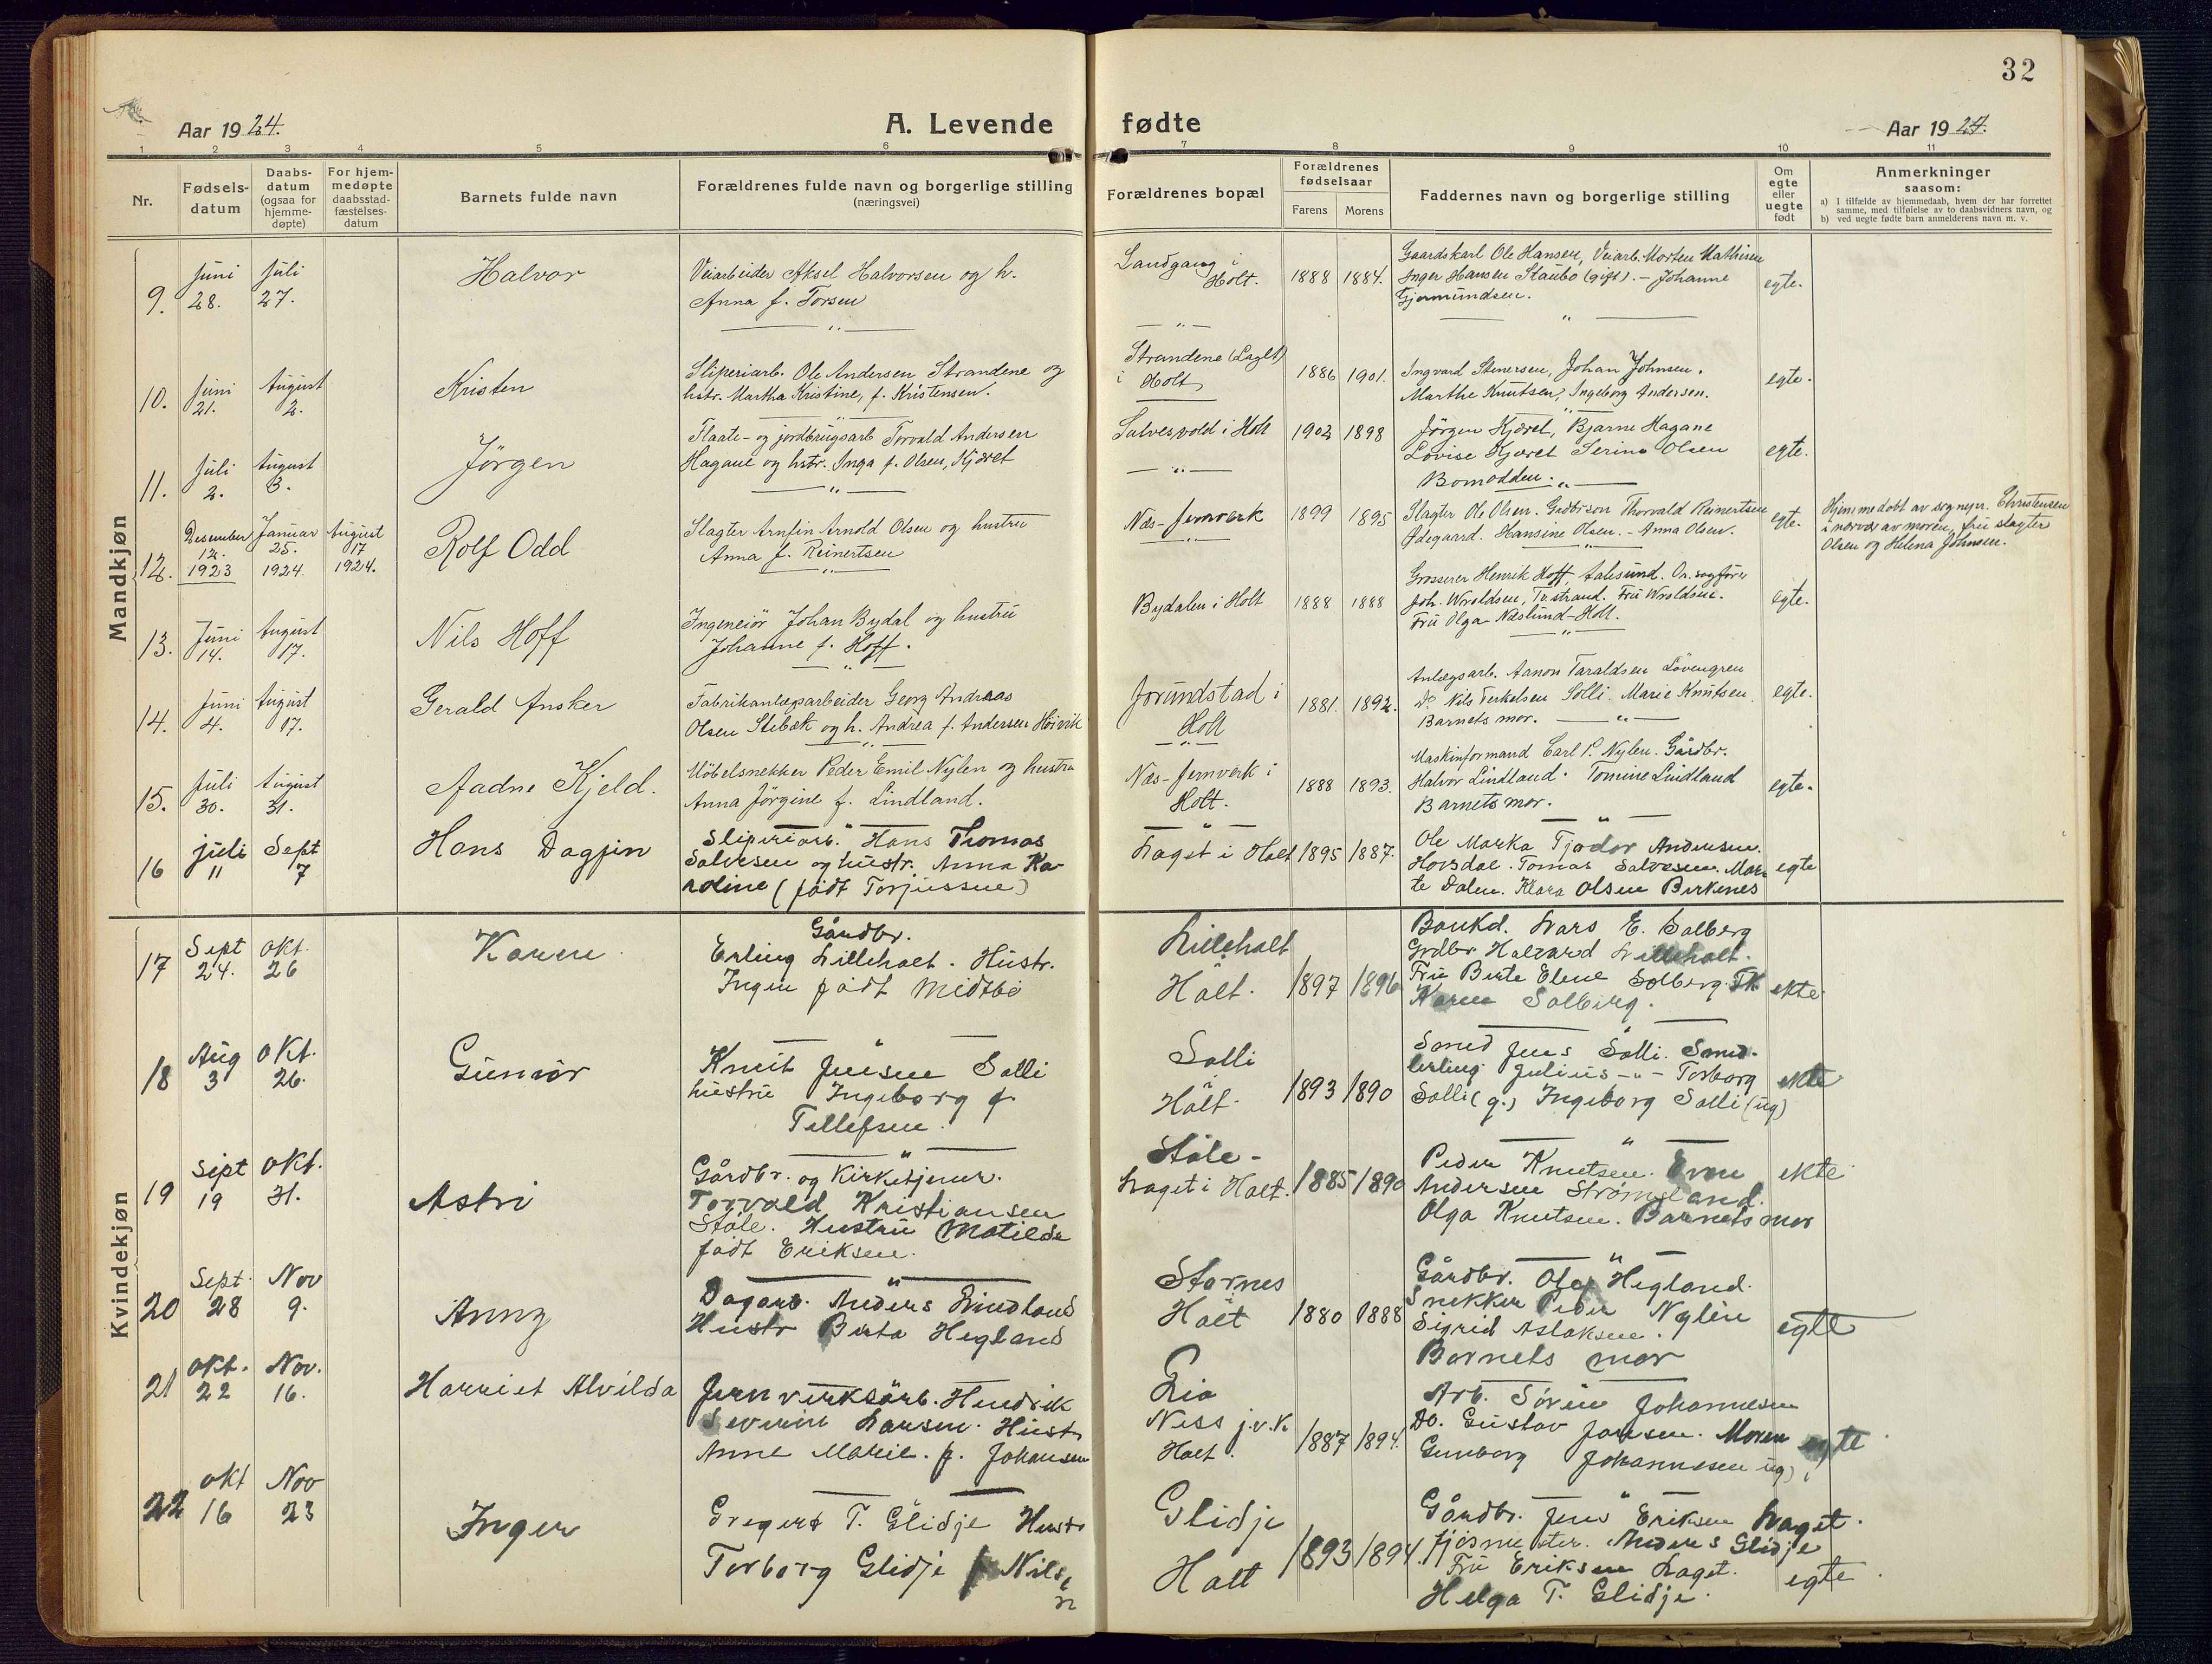 32
Aar 1924.
A. Levende fødte
Aar 1924.
1 2 3 4 5 6 7 8 9 10 11
Nr.
Fødsels-
datum
Daabs-
datum
(ogsaa for
hjemme-
døpte)
For hjem-
medøpte
daabsstad-
fæstelses-
datum
Barnets fulde navn
Forældrenes fulde navn og borgerlige stilling
(næringsvei)
Forældrenes bopæl
Forældrenes
fødselsaar
Farens Morens
Faddernes navn og borgerlige stilling
Om
egte
eller
uegte
født
Anmerkninger
saasom:
a) I tilfælde av hjemmedaab, hvem der har forrettet
samme, med tilføielse av to daabsvidners navn, og
b) ved uegte fødte barn anmelderens navn m. v.
Mandkjøn
9.
Juni
28.
Juli
27.
Halvor
Veiarbeider Aksel Halvorsen og h.
Anna f. Torsen
Landgang i
Holt.
1888 1884.
Gaardskarl Ole Hansen, Veiarb. Morten Mathisen
Inger Hansen Staubo (gift). - Johanne
Gjermundsen.
egte.
10.
Juni
21.
August
2.
Kristen
Sliperiarb. Ole Andersen Strandene og
hstr. Martha Kristine, f. Kristensen.
Strandene (Laget)
i Holt
1886 1901.
Ingvard Stenersen, Johan Johnsen.
Marthe Knutsen, Ingeborg Andersen.
egte.
11.
Juli
2.
August
3.
Jörgen
Flaate- og jordbrugsarb Torvald Andersen
Hagane og hstr. Inga f. Olsen, Kjæret
Salvesvold i Holt
1902 1898
Jörgen Kjæret, Bjarne Hagane
Lovise Kjæret Serine Olsen
Bomodden.
egte.
12.
Desember
12.
1923
Januar
25.
1924.
August
17
1924.
Rolf Odd
Slagter Arnfin Arnold Olsen og hustru
Anna f. Reinertsen
Næs-Jernverk
1899 1895
Slagter Ole Olsen. Thorvald Reinertsen
Ødegaard. Hansine Olsen. - Anna Olsen.
egte.
Hjemmedöbt av sognepr. Christensen
i nærvær av moren, fru slagter
Olsen og Helena Johnsen.
13.
Juni
14.
August
17.
Nils Hoff
Ingeneiör Johan Bydal og hustru
Johanne f. Hoff.
Bydalen i Holt
1888 1888
Grosserer Henrik Hoff, Aalesund. Or. sagförer
Joh. Wroldsen, Tvestrand. Fru Wroldsen.
Fru Olga Næslund-Holt.
egte.
14.
Juni
4.
August
17.
Gerald Ansker
Fabrikanlægsarbeider Georg Andreas
Olsen Stebæk og h. Andrea f. Andersen Höivik
Jorundstad i
Holt
1881. 1892.
Anlægsarb. Aanon Taraldsen Lövengren
Do Nils Terkelsen Solli. Marie Knutsen.
Barnets mor.
egte.
15.
Juli
30.
August
31.
Aadne Kjeld.
Möbelsnekker Peder Emil Nylen og hustru
Anna Jörgine f. Lindland.
Næs-Jernverk i
Holt.
1888 1893.
Maskinformand Carl P. Nylen. Gårdbr.
Halvor Lindland. Tomine Lindland
Barnets mor.
egte.
16
juli
11
Sept
7
Hans Dagfin
Sliperiarb. Hans Thomas
Salvesen og hustr. Anna Ka-
roline (födt Torjussen)
Laget i Holt
1895 1887.
Ole Marka Tjodor Andersen.
Hovsdal. Tomas Salvesen. Mar-
te Dalen. Klara Olsen Birkenes
egte
Kvindekjøn
17
Sept
24.
Okt.
26
Karen
Gårdbr.
Erling Lilleholt. Hustr.
Ingen födt Midtbö
Lilleholt
Holt.
1897 1896
Bankd. Lars E. Solberg
Grdbr Halvard Lilleholt.
Fru Birte Elene Solberg. Fk.
Karen Solberg.
ekte
18
Aug
3
Okt.
26.
Gunvor
Knut Jensen Solli
hustru Ingeborg f.
Tellefsen.
Solli
Holt.
1893 1890
Smed Jens Solli. Smed-
lerling Julius -"- Torborg
Solli (g.) Ingeborg Solli (ug)
ekte
19
Sept
19
Okt.
31.
Astri
Gårdbr. og Kirketjener.
Torvald Kristiansen
Ståle. Hustru Matilde
födt Eriksen.
Ståle-
Laget i Holt.
1885 1890
Peder Knutsen. Even
Andersen Strømsland.
Olga Knutsen. Barnets mor
ekte
20
Sept.
28
Nov
9.
Anny
Dagarb. Anders Lindland
Hustr Birta Hegland
Stornes
Holt
1880 1888
Gårdbr. Olaf Hegland.
Snekker Peder Nylén
Sigrid Aslaksen.
Barnets mor
egte
21
Okt.
22
Nov.
16.
Harriet Alvilda
Jernverksarb. Hendrik
Severin Larsen. Hustr
Anne Marie. f. Johansen
Lia
Ness j.v.k
Holt.
1887 1894.
Arb. Sören Johannesen
Do. Gustav Jansen. Moren
Gunborg Johannesen ug)
egte
22
Okt
16
Nov
23
Inger
Gregert T. Glidje Hustr
Torborg Glidje f Nilse
n
Glidje
Holt
1893 1894.
Gårdbr. Jens Eriksen Laget.
Fjösmester. Anders Glidje
Fru Eriksen Laget.
Helga T. Glidje.
egte